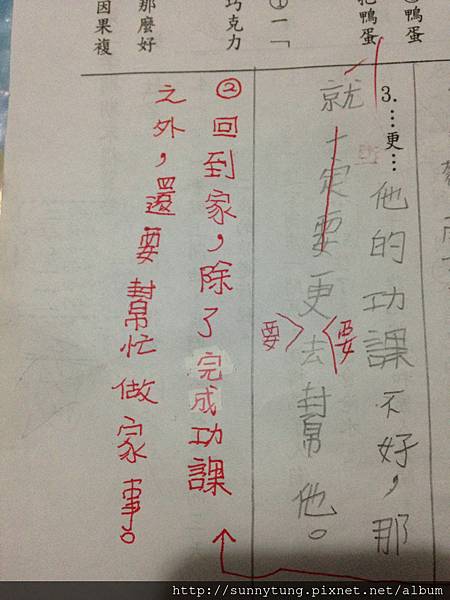 鴨蛋
鴨蛋
①一「
巧克力
那麼好
因果複
3.…更…他的功課不好，那
就一定要更去幫他。
要
要
②回到家，除了完成功課
之外，還要幫忙做家事。
http://sunnytung.pixnet.net/album